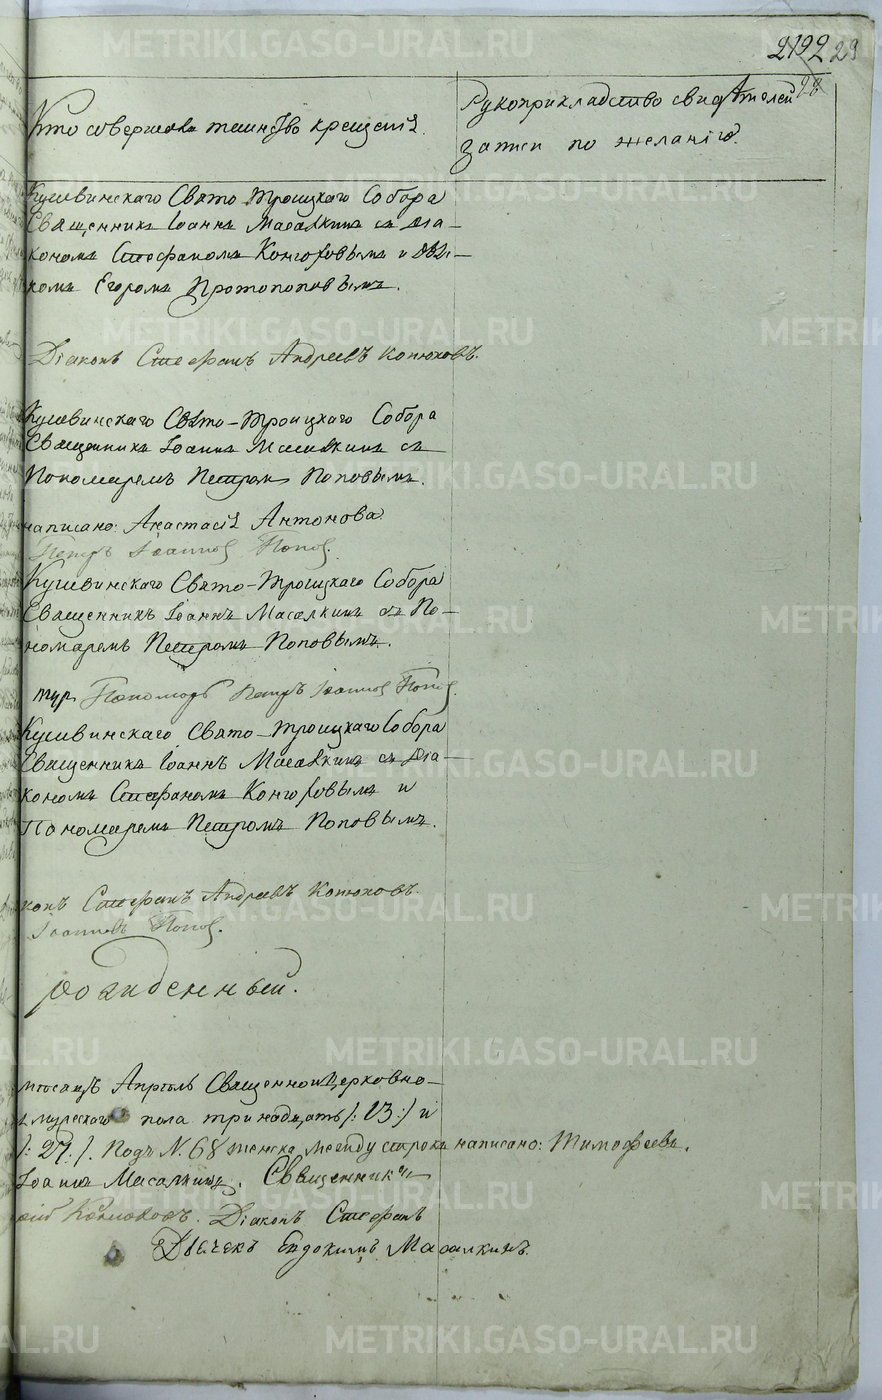 2192 29
28
Кто совершалъ таинство крещенія.
Рукоприкладство свидѣтелей
записи по желанію.
Кушвинскаго Свято-Троицкаго Собора
Священникъ Іоаннъ Масалкинъ съ діа-
кономъ Стефаномъ
комъ Егоромъ Протопоповымъ.
Діаконъ Стефанъ Андреевъ Конюховъ.
Кушвинскаго Свято-Троицкаго Собора
Священникъ Іоаннъ Масалкинъ съ
Пономаремъ Петромъ Поповымъ.
написано: Анастасія Антонова
Петръ Іоанновъ Поповъ.
Кушвинскаго Свято-Троицкаго Собора
Священникъ Іоаннъ Масалкинъ съ По-
номаремъ Петромъ Поповымъ.
Пономарь Петръ Іоанновъ Поповъ.
Кушвинскаго Свято-Троицкаго Собора
Священникъ Іоаннъ Масалкинъ съ діа-
кономъ Стефаномъ и
Пономаремъ Петромъ Поповымъ.
конъ Стефанъ Андреевъ Конюховъ.
Іоанновъ Поповъ.
мѣсяцъ Апрѣль Священноцерковно-
мужескаго пола тринадцать /:13:/ и
/:27:/. Подъ N. 68 между строкъ написано: Тимофеевъ.
Іоаннъ Масалкинъ. Священникъ
Діаконъ Стефанъ
Дьячекъ Евдокимъ Масалкинъ.
METRIKI.GASO-URAL.RU